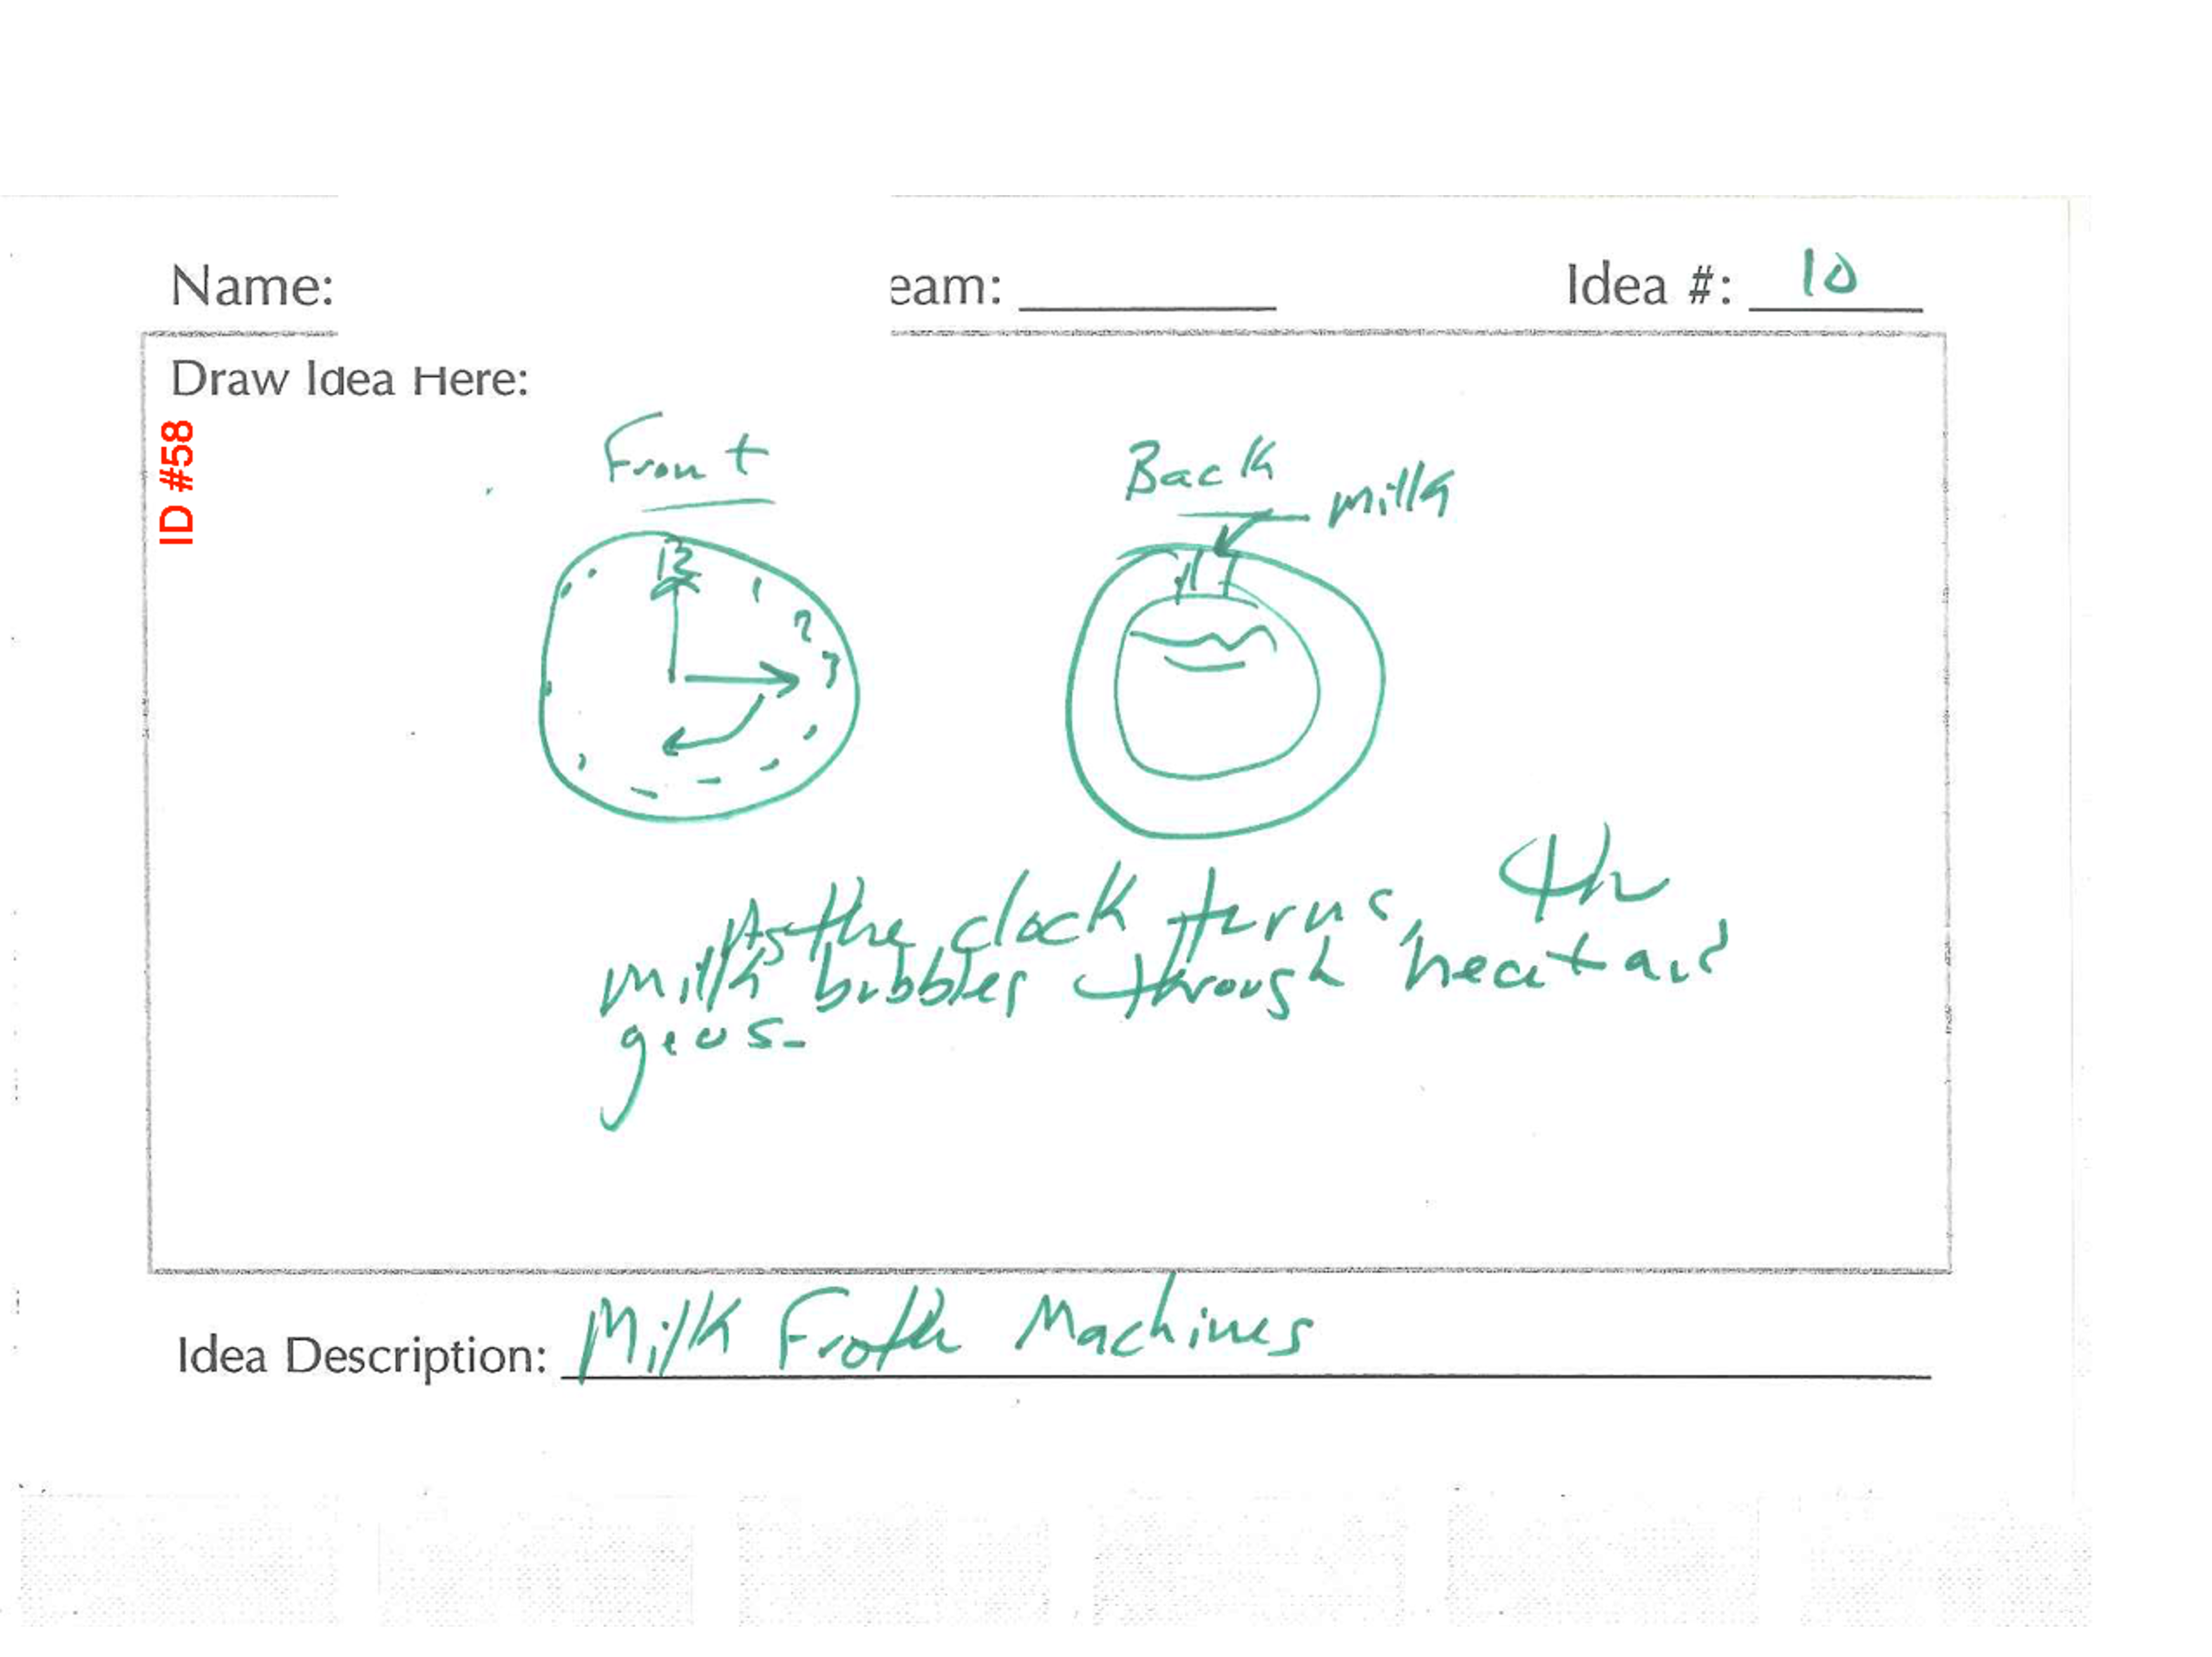 Name: eam: Idea #: 10
Draw Idea Here:
ID #58
Front Back
milk
12
1
2
3
As the clock turns, th
milk bubbles through heat and
geus.
Idea Description: Milk Froth Machines